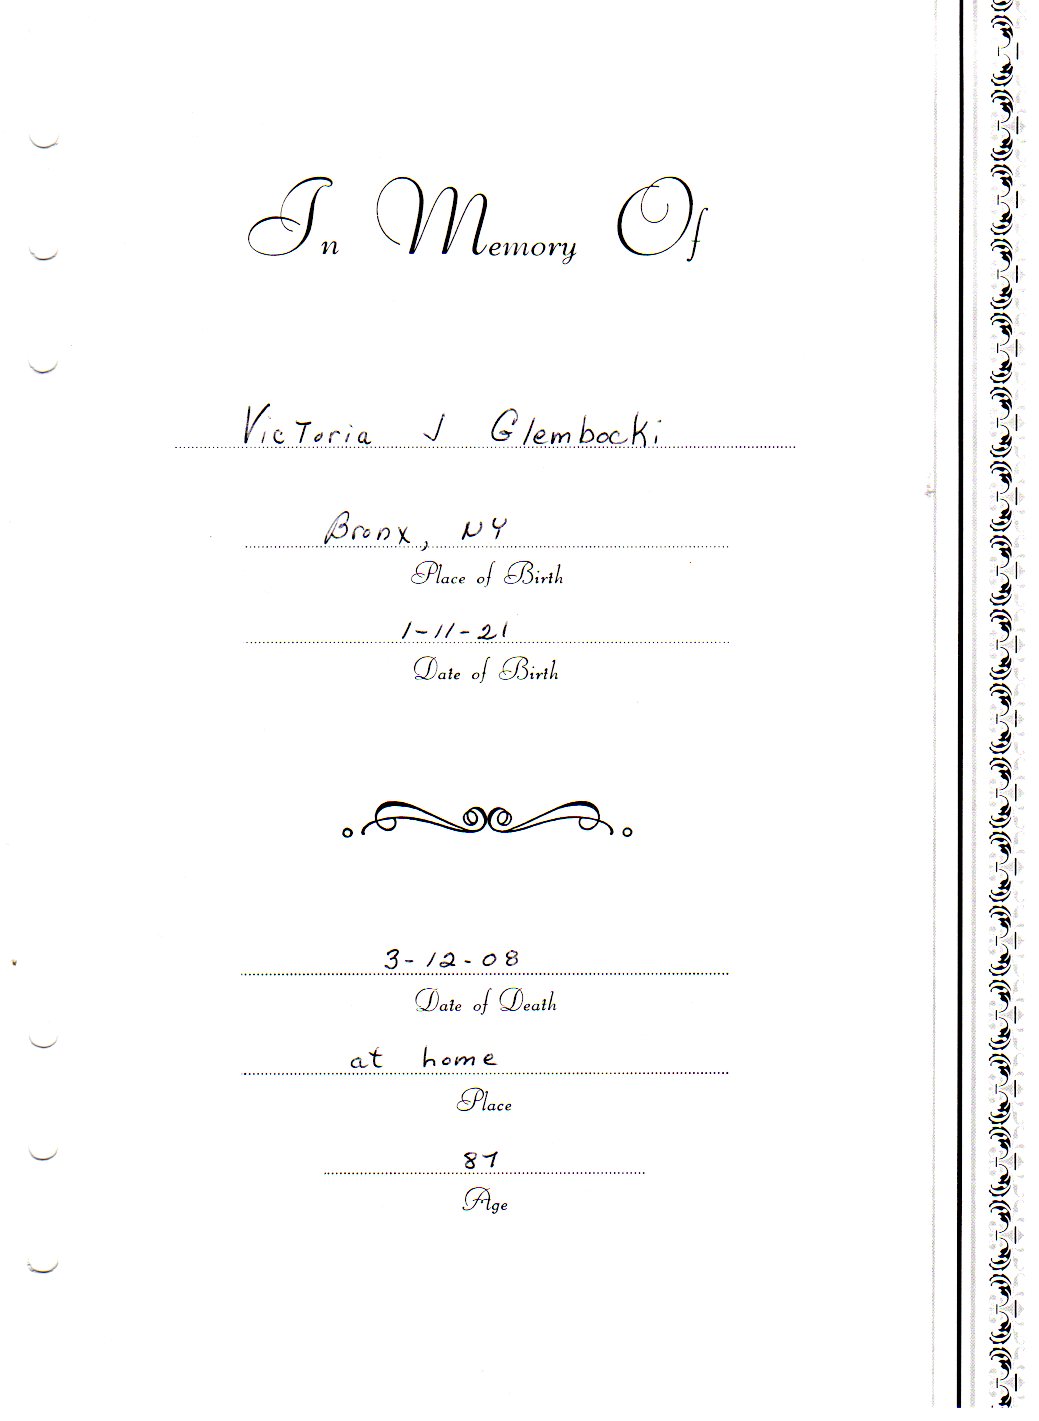 In Memory Of
Victoria J Glembocki
Bronx, NY
Place of Birth
1-11-21
Date of Birth
3-12-08
Date of Death
at home
Place
87
Age